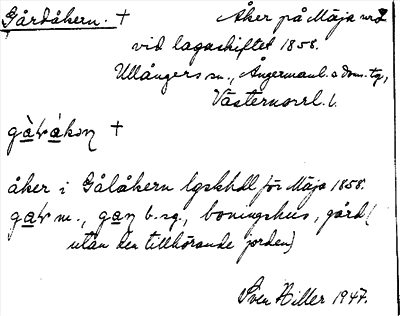 Gårdåkern. † Åker på Mäja nr 2
vid lagaskiftet 1858.
Ullångers sn., Ångermanl. s doms. tg,
Västernorrl. l.
†
åker i Gålåkern lgskhdl för Mäja 1858.
m., b. sg., boningshus, gård (
utan den tillhörande jorden)
Sven Hiller 1947.